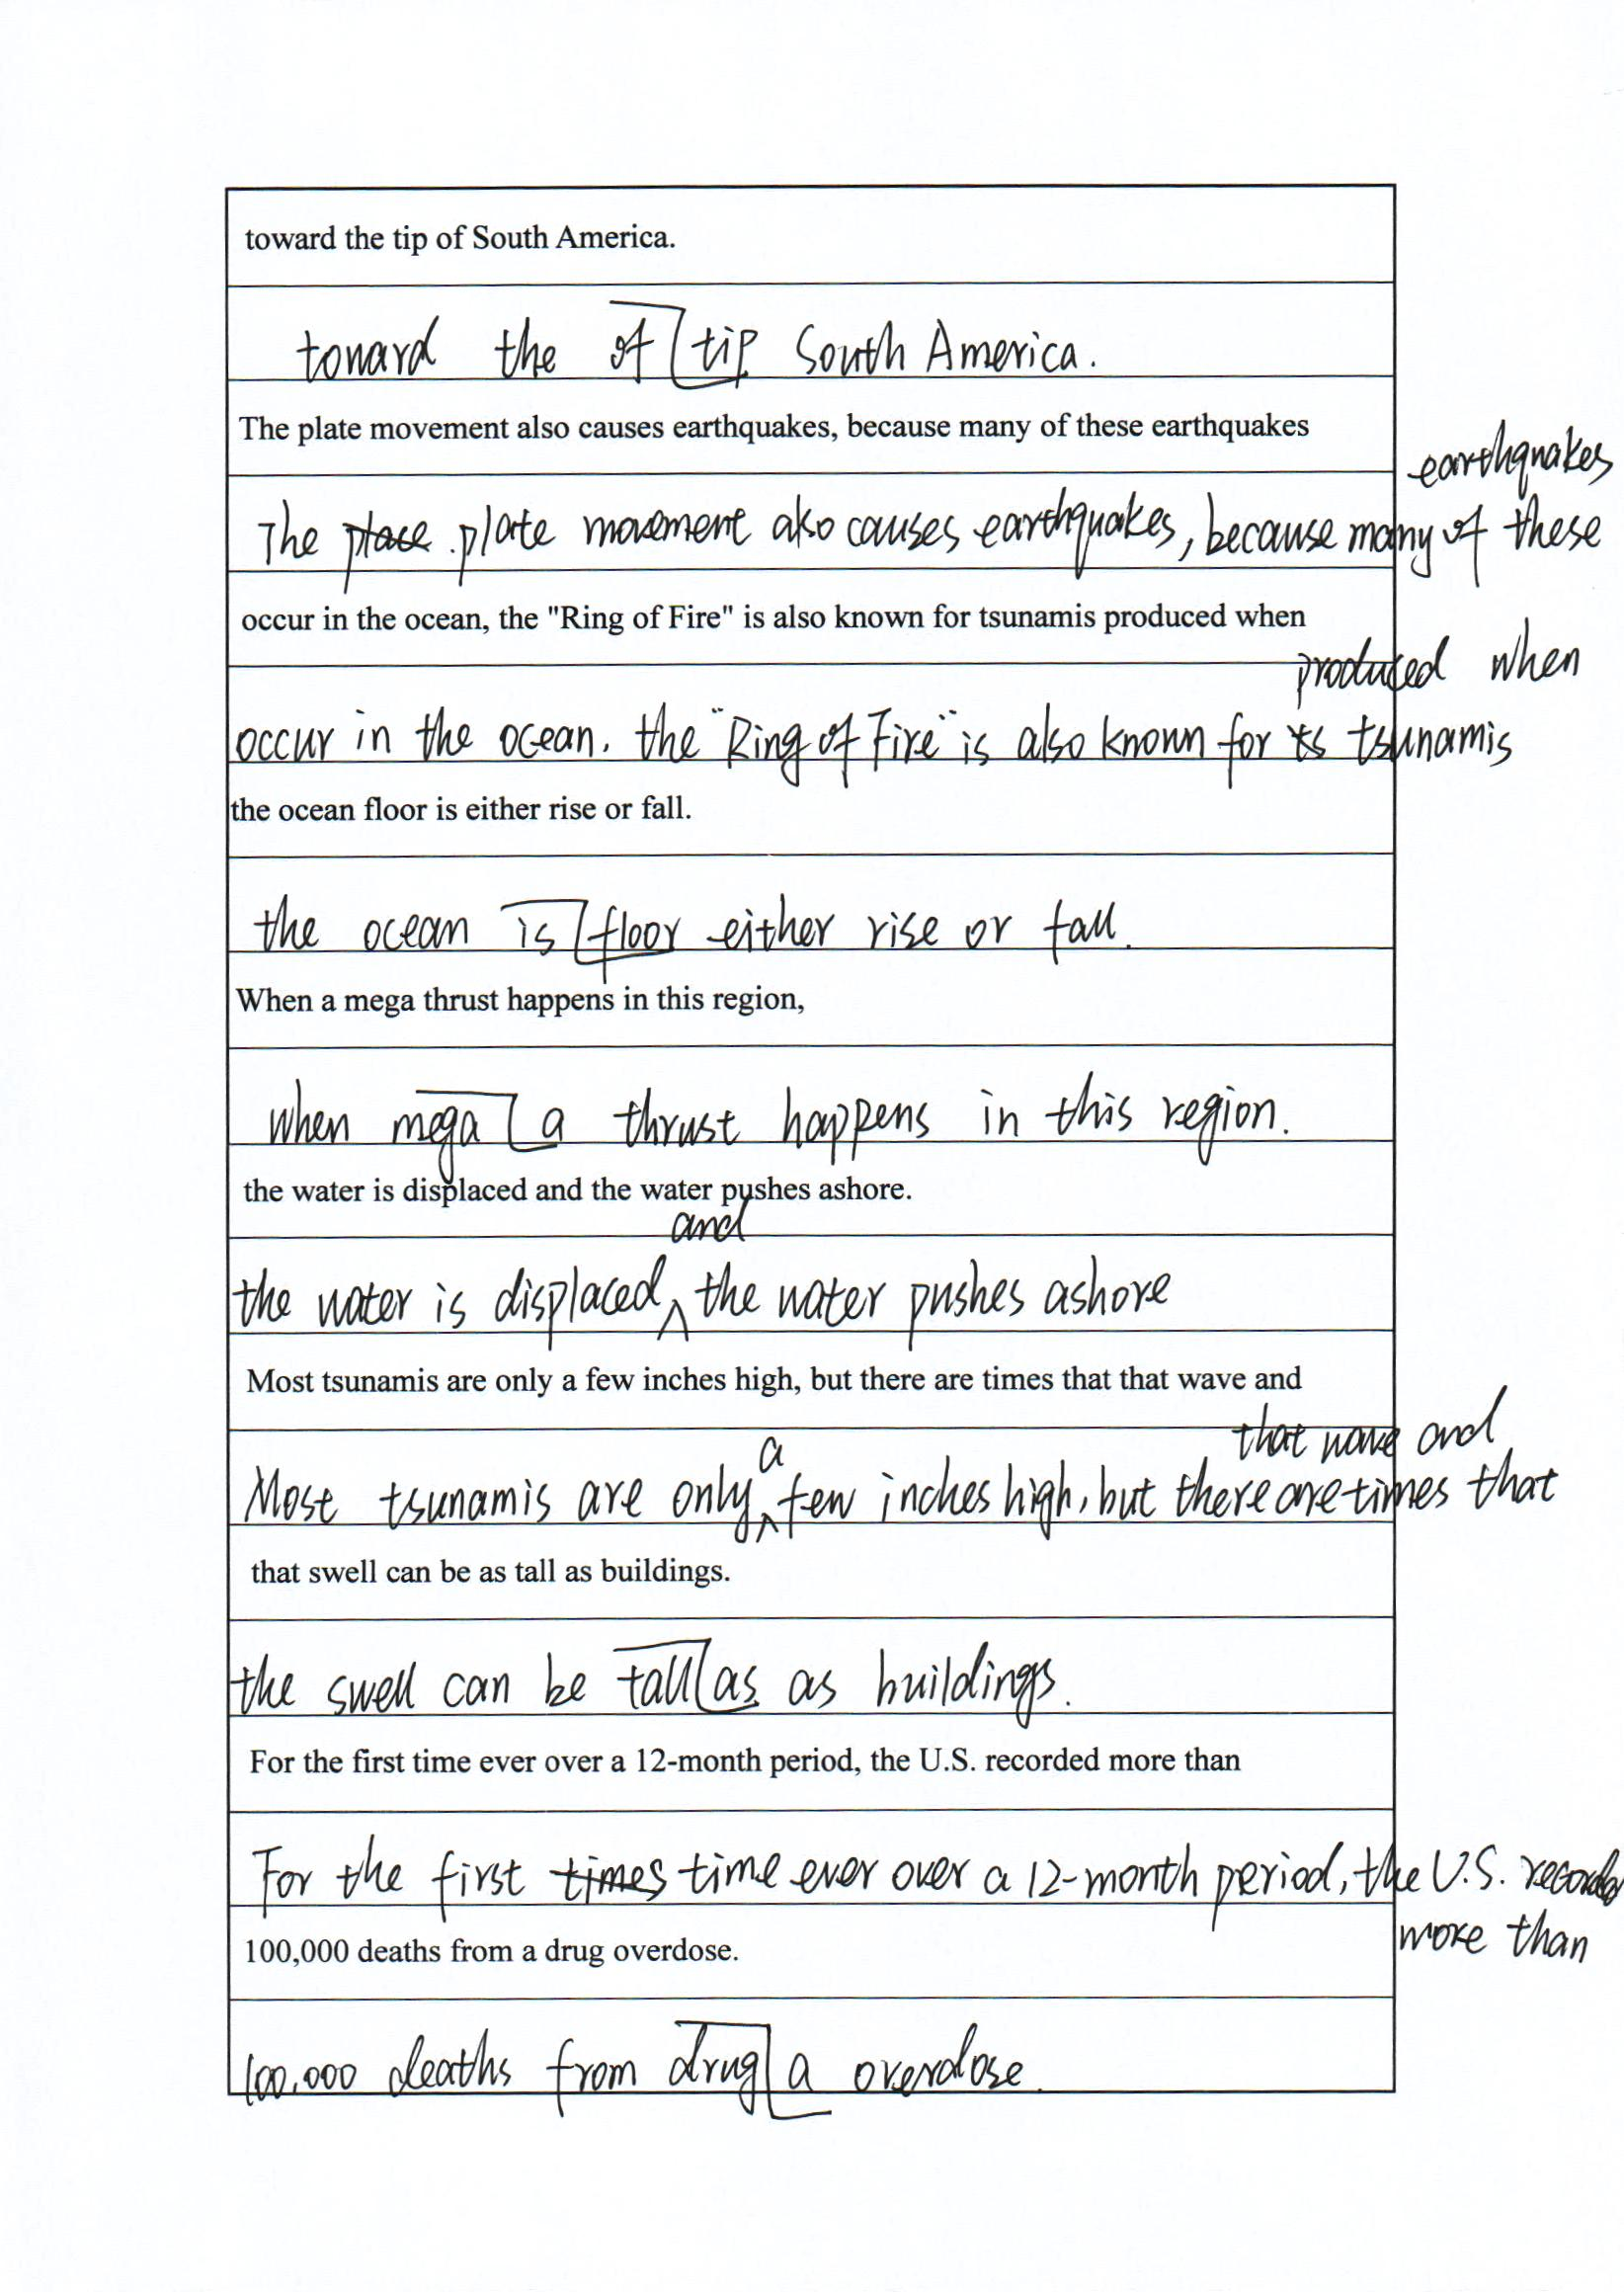 toward the tip of South America.
toward the of tip South America.
The plate movement also causes earthquakes, because many of these earthquakes
earthquakes
The place plate movement also causes earthquakes, because many of these
occur in the ocean, the "Ring of Fire" is also known for tsunamis produced when
produced when
occur in the ocean. the "Ring of Fire" is also known for ts tsunamis
the ocean floor is either rise or fall.
the ocean is floor either rise or fall.
When a mega thrust happens in this region,
when mega a thrust happens in this region.
the water is displaced and the water pushes ashore.
and
the water is displaced the water pushes ashore
Most tsunamis are only a few inches high, but there are times that that wave and
that wave and
Most tsunamis are only a few inches high, but there are times that
that swell can be as tall as buildings.
the swell can be tall as as buildings.
For the first time ever over a 12-month period, the U.S. recorded more than
For the first times time ever over a 12-month period, the U.S. recorded
more than
100,000 deaths from a drug overdose.
100,000 deaths from drug a overdose.